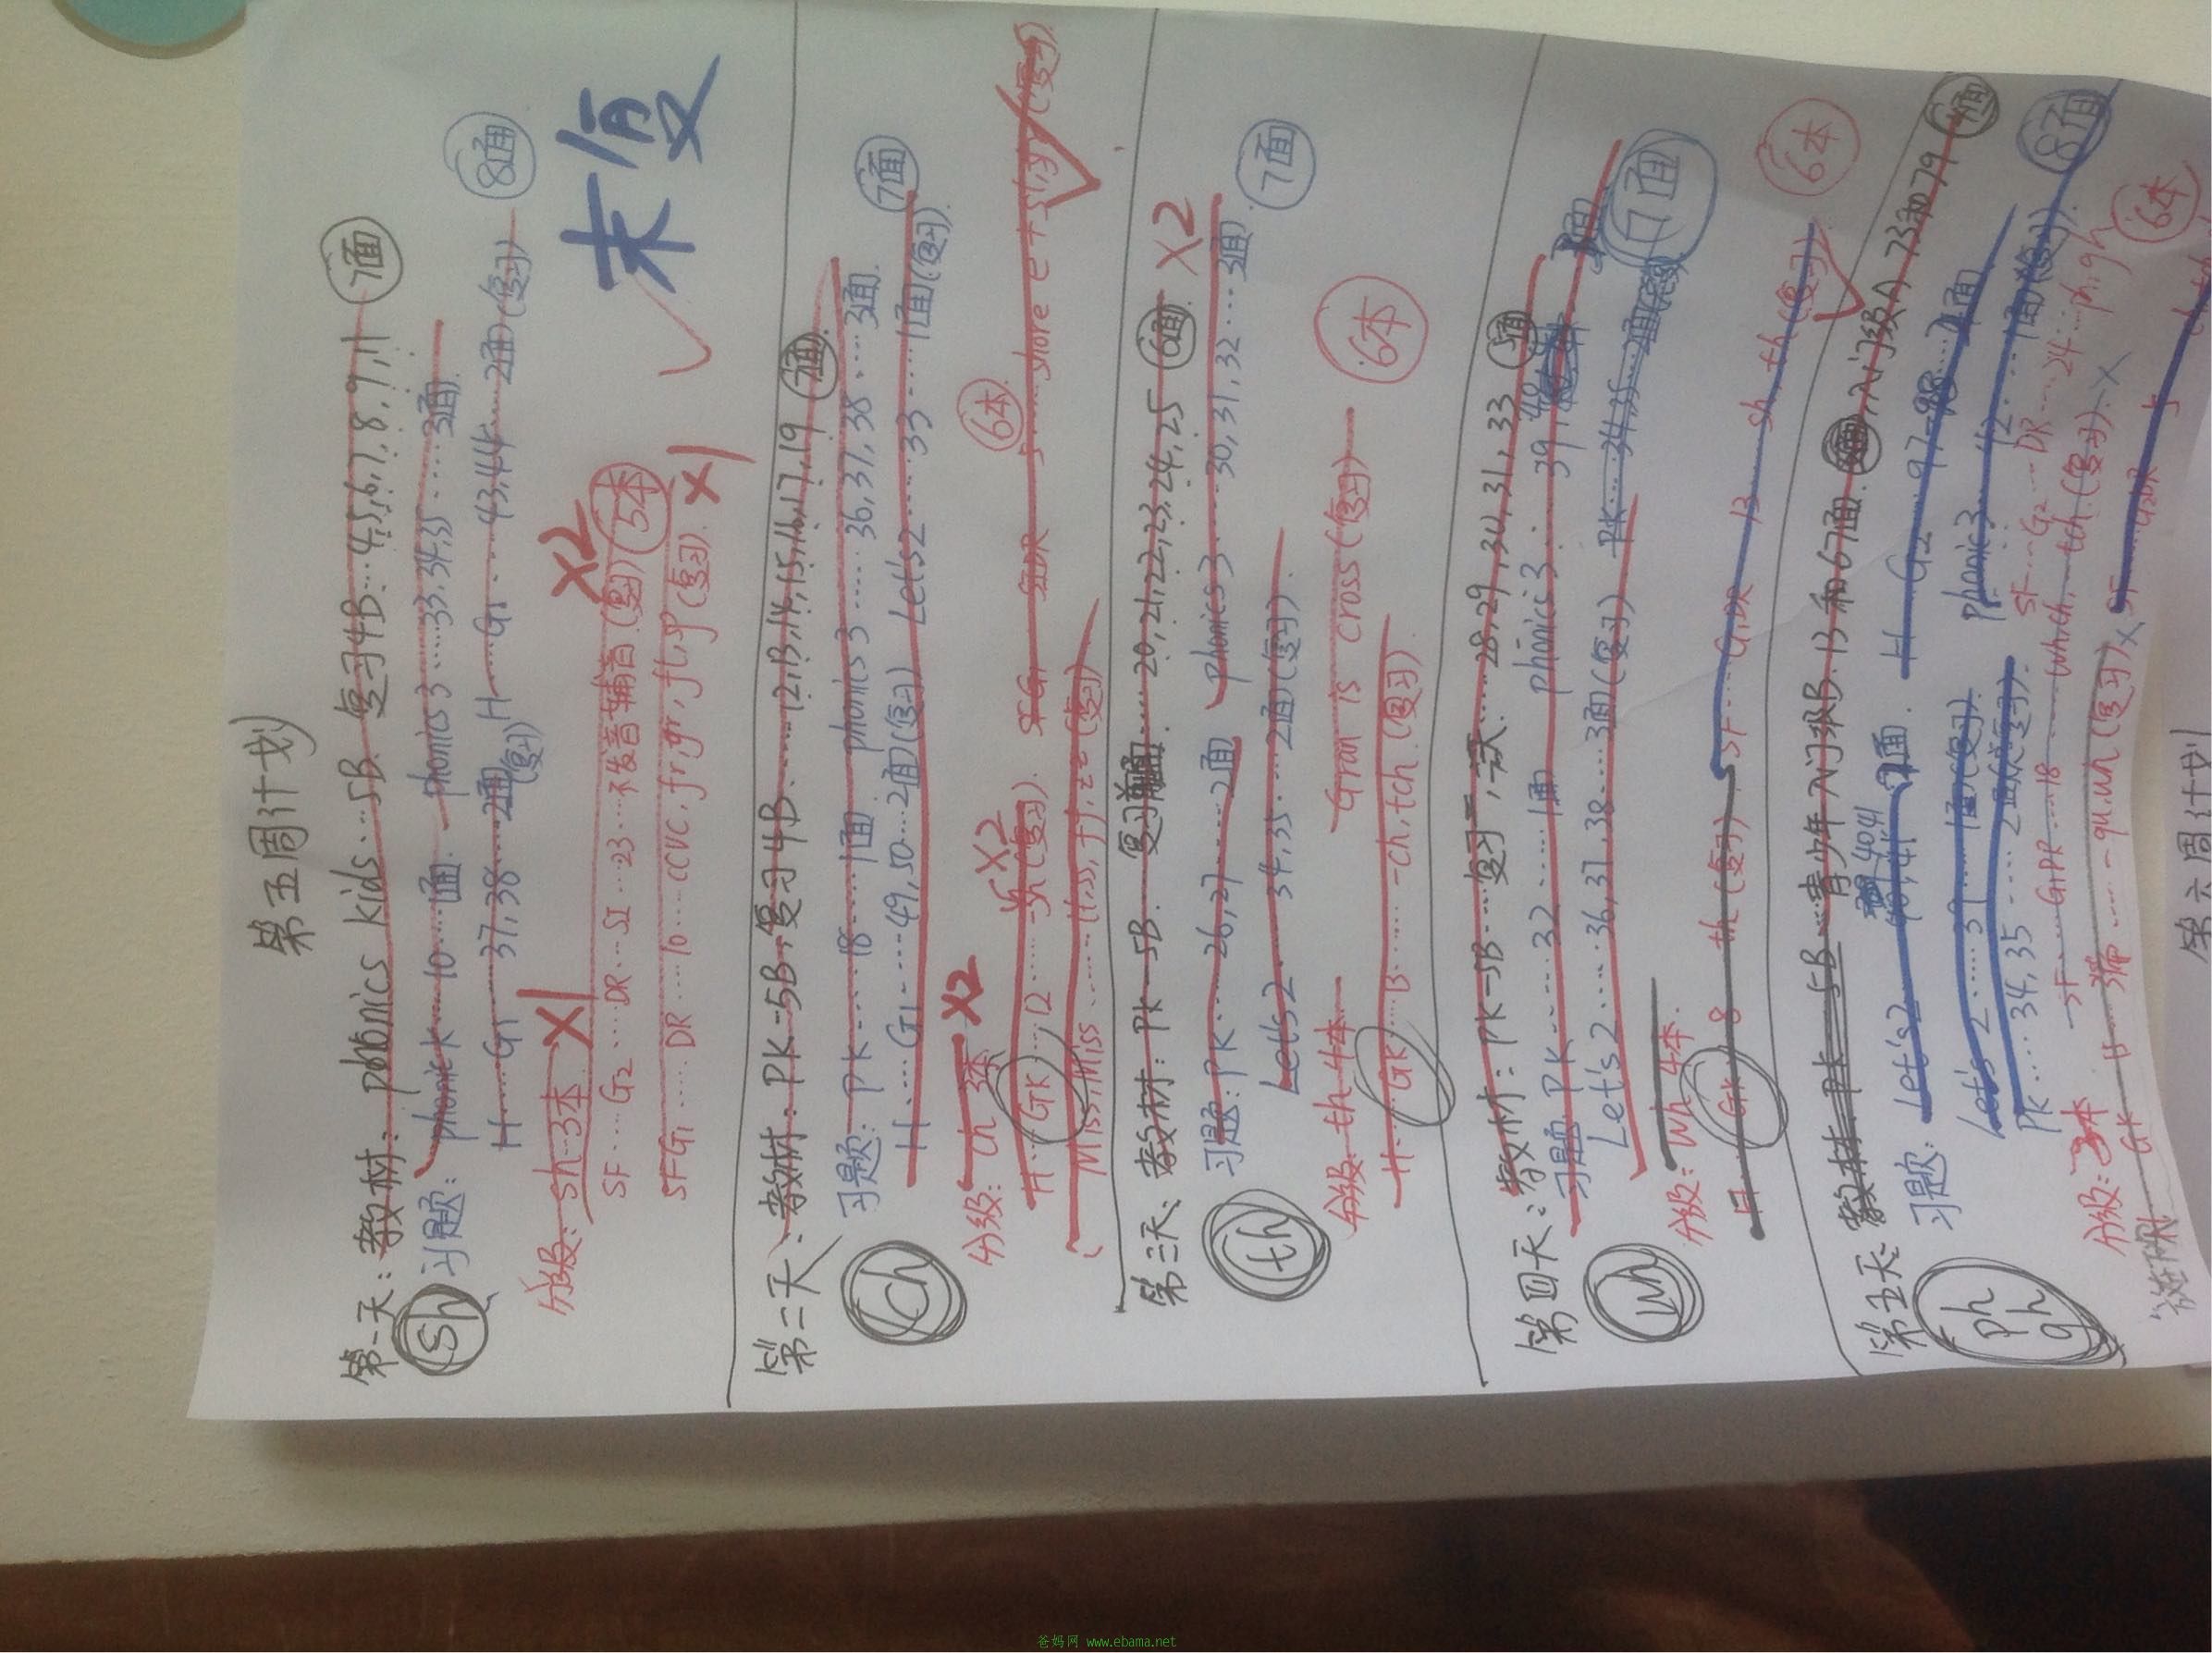 第五周计划
第一天:教材:phonics kids...5B 复习4B...4,5,6,7,8,9,11 7面
sh
习题:phonick...10...1面. phonics3....33,34,35....3面.
8面
H....G1...37,38...2面(复习) H...G1...43,44...2面(复习)
未复
分级:sh...3本 X1 X2
SF...G2...DR...SI...23...不发音辅音(复习) 5本
SFG1....DR...10....CCVC,fr,gr,fl,gl(复习). X1
第二天:教材:PK-5B,复习4B.......12,13,14,15,16,17,19 7面
习题:PK....18....1面 phonics3.....36,37,38....3面.
ch
7面
H....G1....49,50...2面(复习) Let's2....33....1面(复习)
分级:ch 3本 X2
6本
H...GK...12....sh(复习). X2 SFG1 share (复习)
Miss,Miss.....ll,ss,ff,zz(复习)
第三天:教材:PK-5B. 复习.....20,21,22,23,24,25 6面 X2
习题:PK....26,27....2面 phonics3.....30,31,32...3面
th
7面
Let's2....34,35....2面(复习).
分级:th 4本 Gran is cross(复习)
6本
H...GK...13......ch,tch.(复习)
第四天:教材:PK-5B...复习....28,29,30,31,33 5面
习题 PK....32....1面 phonics3....39
wh
Let's2....36,37,38...3面(复习) PK...34,35...2面 7面
分级:wh 4本.
6本
H...GK...8...th(复习). SF...G1DR...13...sh,th(复习)
第五天:教材 PK 5B...青少年入门级B.13和67面.入门级A 73和79 4面
习题:Let's2 40,41 2面. H...G2...97-98...2面
ph
gh
Let's2....39....1面(复习). phonics3....42....1面(复习).
8面
PK...34,35.....2面(复习). SF...G2...DR...24...ph,gh
分级:3本 SF...G1DR...18...wh,ch,tch(复习).X
6本
GK H.......qu,wh(复习)X SF...G2DR
第六周计划
爸妈网 www.ebama.net